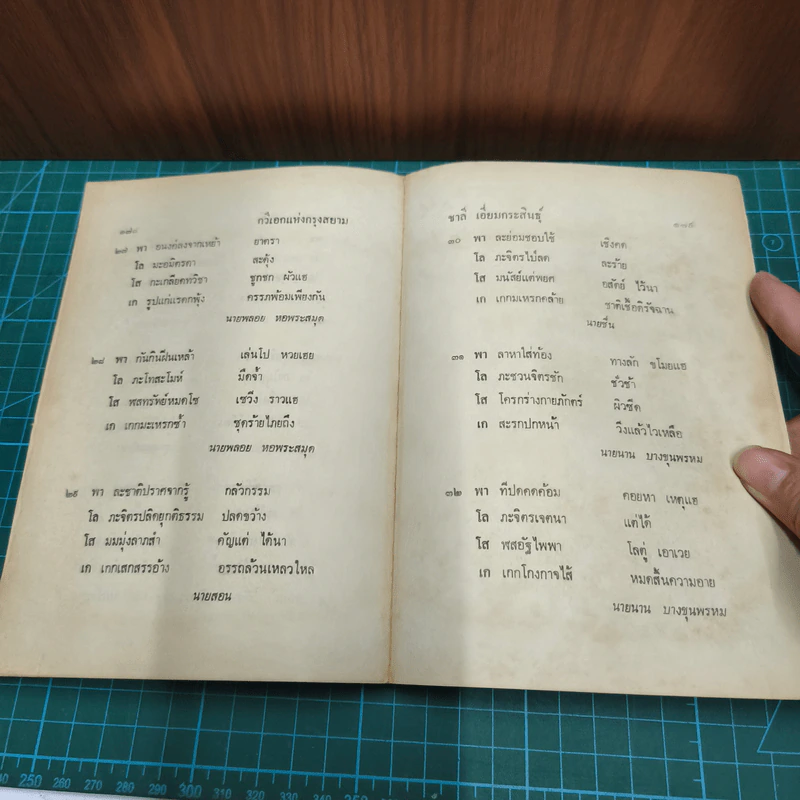 ๑๗๘ กวีเอกแห่งกรุงสยาม
๒๗ พา อนงค์ลงจากเหย้า อาตรา
โล มะอมิตรตา ละคุ้ง
โส กะเกลือตทวิชา ชูกชก ผัวแฮ
เก รูปแก่แรคกพุ้ง ครรภพ้อมเพียงกัน
นายพลอย หอพระสมุด
๒๘ พา กันกินฝิ่นเหล้า เล่นโป หวยเฮย
โล ภะโทสะโมห์ มืดจ้า
โส พสทรัพย์หมดโซ เซวึง ราวแฮ
เก เกกมะเหรกซ้ำ ชุดร้ายไภยถึง
นายพลอย หอพระสมุด
๒๙ พา ละชาติปราศจากรู้ กลัวกรรม
โล ภะจิตรปลิดยุกติธรรม ปลดขว้าง
โส มมมุ่งลาภสำ คัญแต่ ได้นา
เก เกกเสกสรรอ้าง อรรถล้วนเหลวไหล
นายสอน
ชาลี เอี่ยมกระสินธุ์ ๑๗๙
๓๐ พา ละย่อมชอบใช้ เชิงคด
โล ภะจิตรไป่ลด ละร้าย
โส มนัสย์แต่พยศ อสัตย์ ไว้นา
เก เกกมเหรกคล้าย ชาติเชื้อดิรัจฉาน
นายชื่น
๓๑ พา ลาหาใส่ท้อง ทางลัก ขโมยแฮ
โล ภะชวนจิตรชัก ชั่วช้า
โส โครกร่างกายภักตร์ ผิวซีด
เก สะรกปกหน้า วิ่งแล้วไวเหลือ
นายนาน บางขุนพรหม
๓๒ พา ทีปดคดค้อม คอยหา เหตุแฮ
โล ภะจิตรเจตนา แต่ได้
โส พสอัฐไพพา โลตู่ เอาเวย
เก เกกโกงกาจไส้ หมดสิ้นความอาย
นายนาน บางขุนพรหม
250 260 270 280 290 300 310